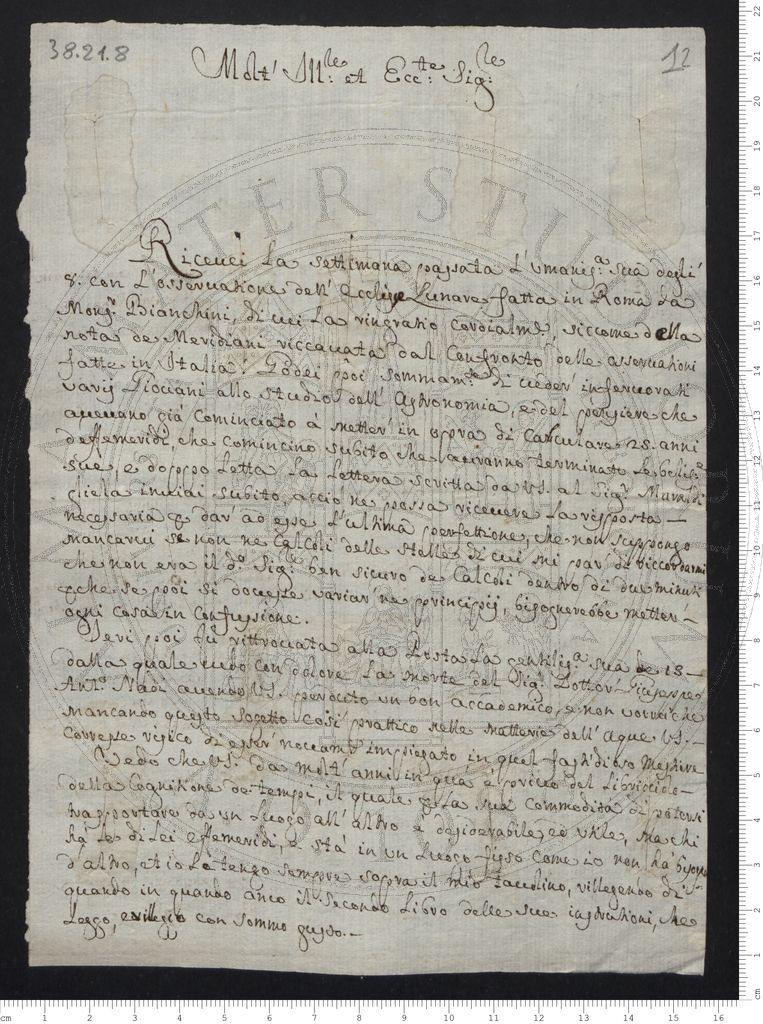 38.21.8
12
Molt' Ill:le et Ecc:tte Sig:le
Riceuei la settimana passata l'umaniss.a sua degli
8. con l'osseruatione dell' Ecclisse Lunare fatta in Roma da
Mons.r Bianchini, di cui la ringratio cordialm.te, siccome della
nota de Meridiani riccauata dal Confronto delle osseruationi
fatte in Italia. Godei poi sommam.te di ueder inferuorati
varij Giouani allo studio dell' Astronomia, e del pensiere che
aueuano già Cominciato à metter' in opra di Calculare 25. anni
d'effemeridi, che comincino subito che aueranno terminate le belliss.e
sue, e doppo letta la lettera scritta da VS. al Sig.r
gliela inuiai subito, acciò ne possa riceuere la risposta
necessaria p dar' ad esse l'ultima perfettione, che non suppongo
mancarui se non ne Calcoli delle stelle di cui mi par' de riccordarmi
che non era il d.o Sig.le ben sicuro de Calcoli dentro di due minuti
che se poi si douesse variar' ne principij, bisognerebbe metter'
ogni cosa in confusione.
Ieri poi fu rittrouata alla Posta la gentiliss.a sua de 13
dalla quale uedo con dolore la morte del Sig.r Dottor' Giuseppe
Ant.o Nadi auendo VS. perduto un bon accademico, e non vorrei che
mancando questo sogetto così prattico nelle matterie dell' Aque VS.
corresse risico di esser' impiegato in quel fastidioso mestiere
Vedo che VS. da molt' anni in quà è priuo del libricciolo
della Cognitione de tempi, il quale p la sua Commodità di potersi
trapportare da un luogo all' altro è desiderabile, ed utile, ma chi
hà le di lei effemeridi, e stà in un luoco fisso come io non hà bisogno
d'altro, et io le tengo sempre sopra il mio tauolino, rillegendo di
quando in quando anco il secondo libro delle sue instrutioni, che
leggo, e rilleggo con sommo gusto.